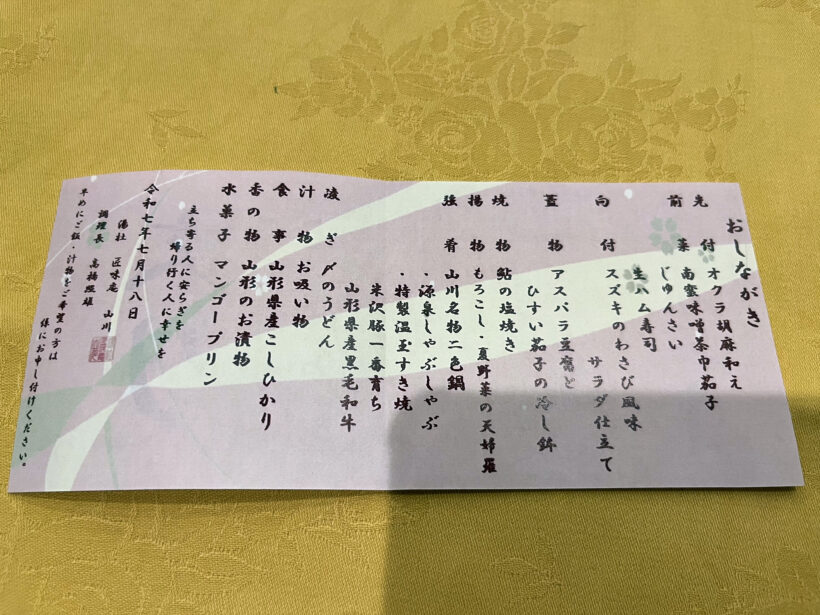 おしながき
先付 オクラ胡麻和え
前菜 南蛮味噌茶巾茄子
じゅんさい
生ハム寿司
向付 スズキのわさび風味
サラダ仕立て
蓋物 アスパラ豆腐と
ひすい茄子の冷し鉢
焼物 鮎の塩焼き
揚物 もろこし・夏野菜の天婦羅
強肴 山川名物二色鍋
・源泉しゃぶしゃぶ
・特製温玉すき焼
米沢豚一番育ち
山形県産黒毛和牛
凌ぎ 〆のうどん
汁物 お吸い物
食事 山形県産こしひかり
香の物 山形のお漬物
水菓子 マンゴープリン
立ち寄る人に安らぎを
帰り行く人に幸せを
令和七年七月十八日
湯社 匠味庵 山川
調理長 高橋照雄
早めにご飯・汁物をご希望の方は
係にお申し付けください。